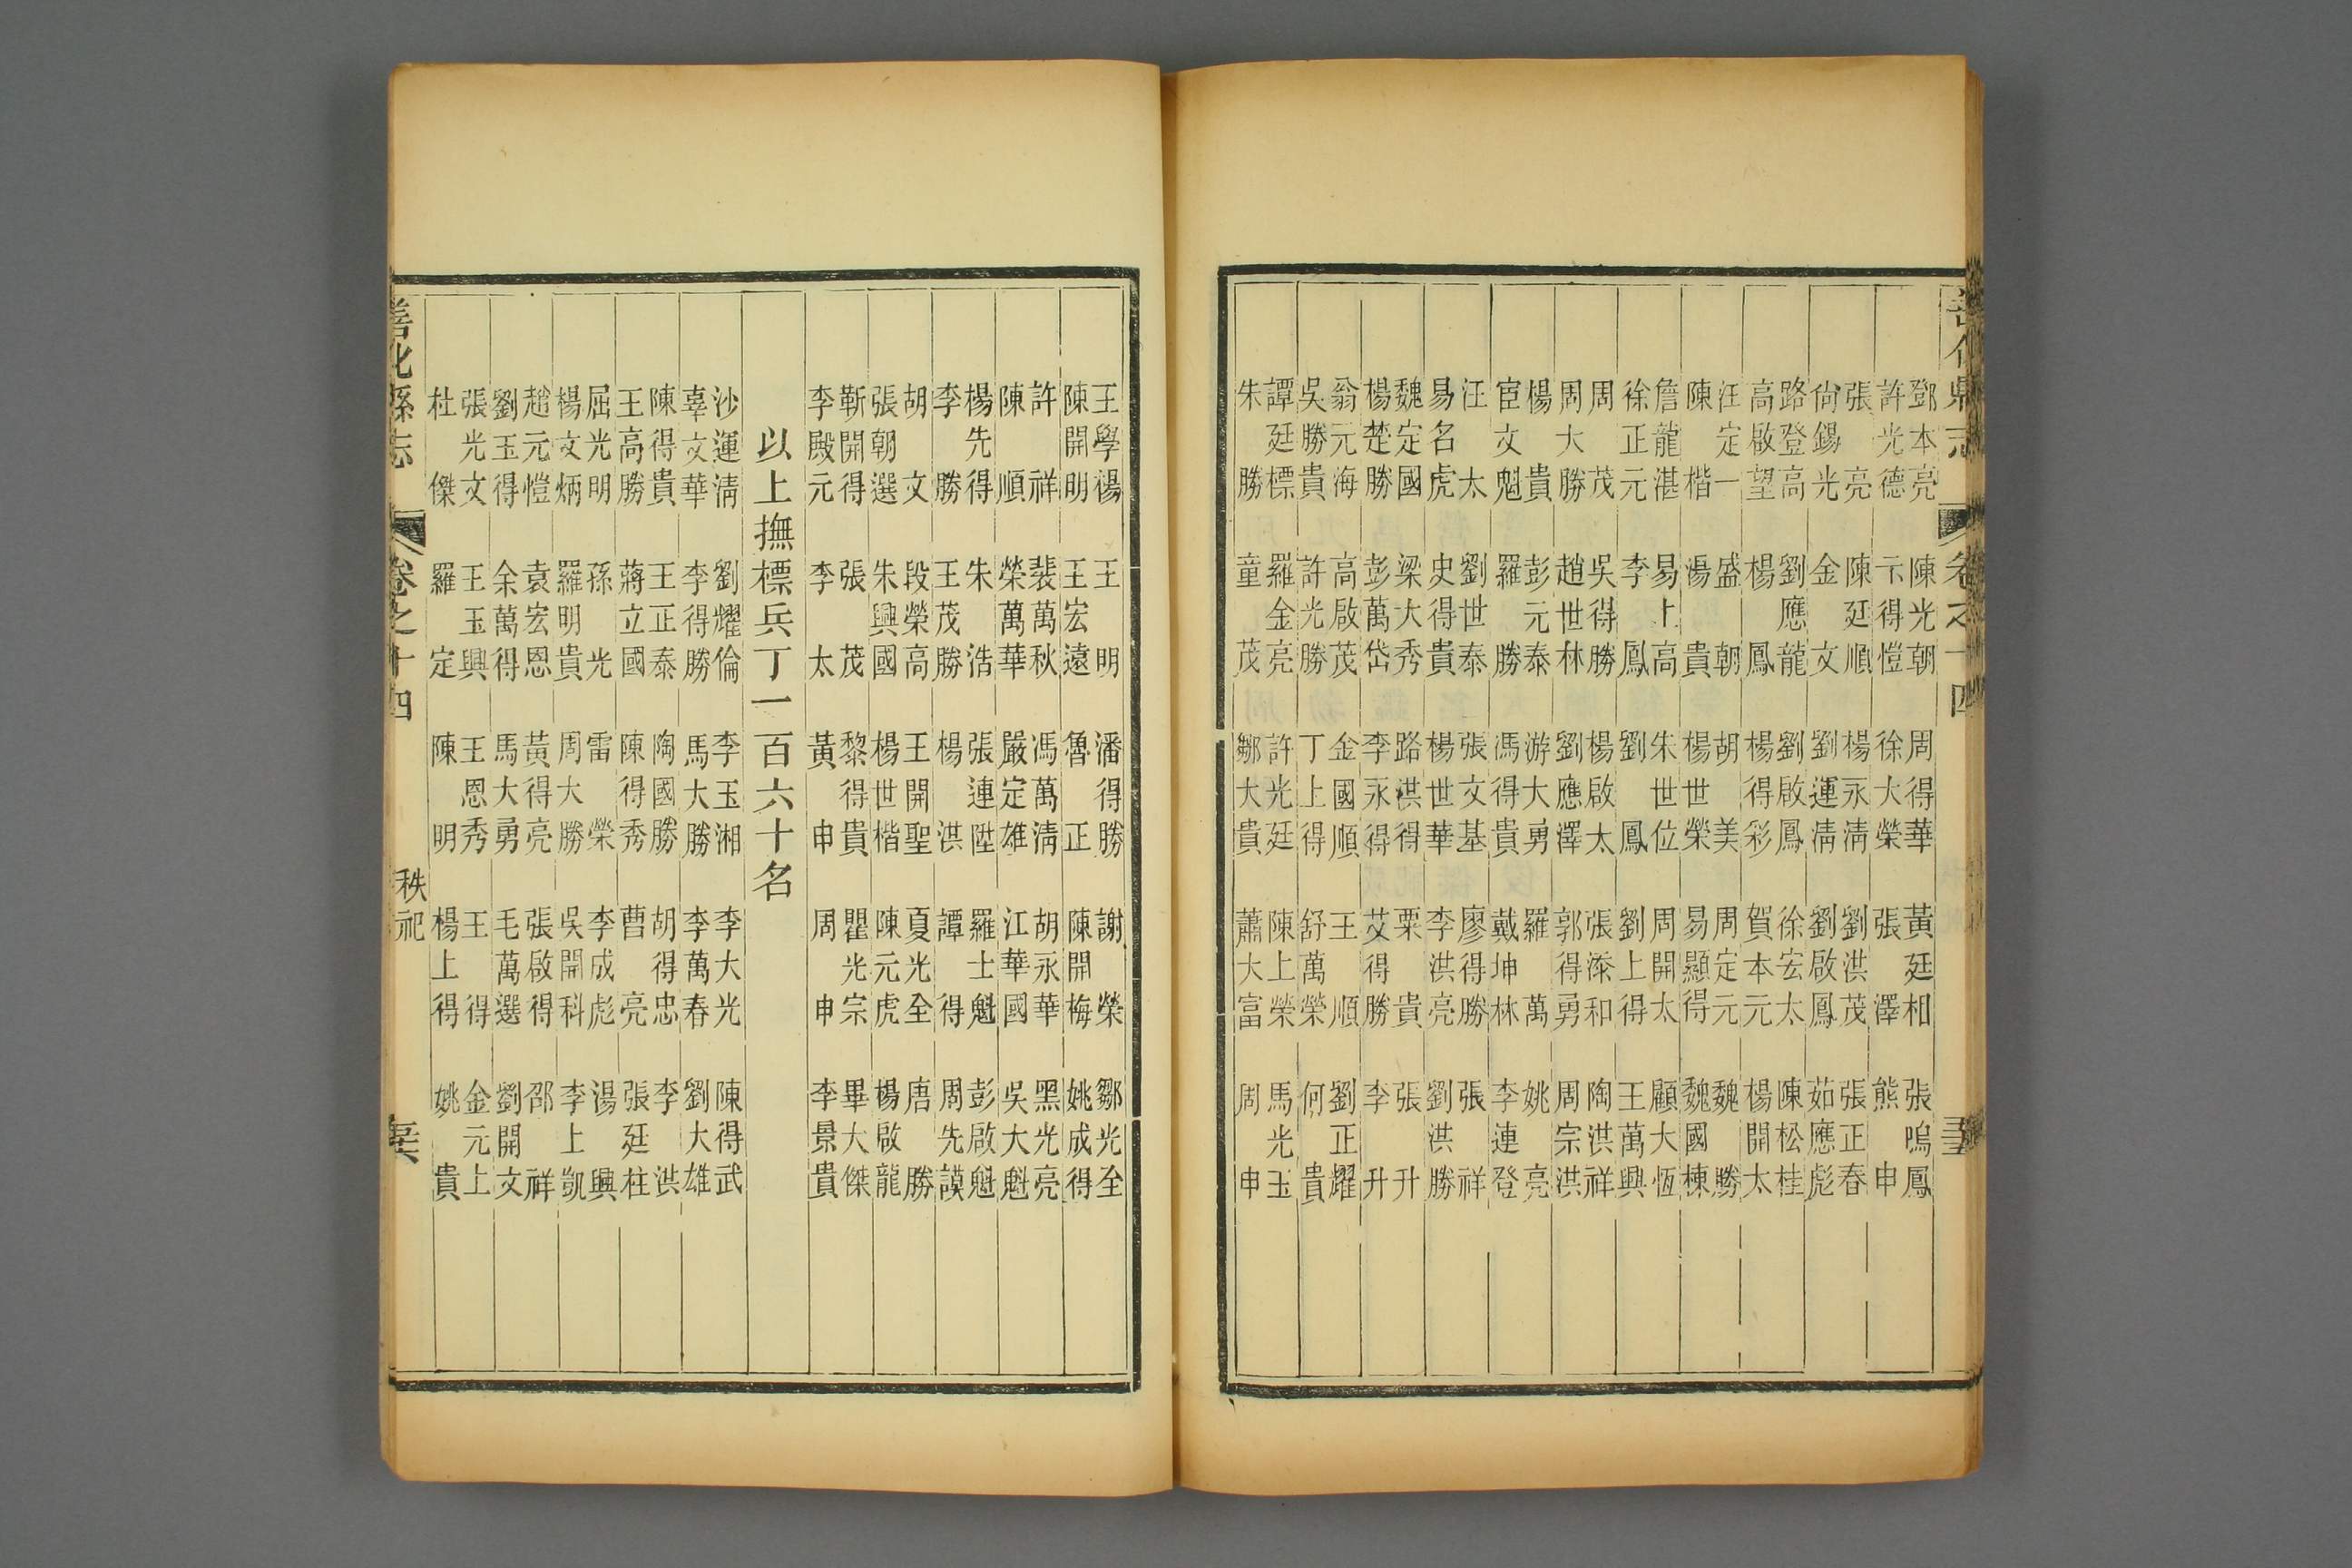 善化縣志 卷之十四
鄧本亮 陳光朝 周得華 黃廷相 張鳴鳳
許光德 卞得愷 徐大榮 張澤 熊申
張亮 陳廷順 楊永淸 劉洪茂 張正春
尙錫光 金文 劉運淸 劉啟鳳 茹應彪
路登高 劉應龍 劉啟鳳 徐宏太 陳松桂
高啟望 楊鳳 楊得彩 賀本元 楊開太
汪定一 盛朝 胡美 周定元 魏勝
陳楷 湯貴 楊世榮 易顯得 魏國棟
詹龍湛 易上高 朱世位 周開太 顧大恆
徐正元 李鳳 劉鳳 劉上得 王萬興
周茂 吳得勝 楊啟太 張漆和 陶洪祥
周大勝 趙世林 劉應澤 郭得勇 周宗洪
楊貴 彭元泰 游大勇 羅萬 姚亮
宦文魁 羅勝 馮得貴 戴坤林 李連登
汪太 劉世泰 張文基 廖得勝 張祥
易名虎 史得貴 楊世華 李洪亮 劉洪勝
魏定國 梁大秀 路洪得 栗貴 張升
楊楚勝 彭萬岱 李永得 艾得勝 李升
翁元海 高啟茂 金國順 王順 劉正耀
吳勝貴 許光勝 丁上得 舒萬榮 何貴
譚廷標 羅金亮 許光廷 陳上榮 馬光玉
朱勝 童茂 鄒大貴 蕭大富 周申
王學楊 王明 潘得勝 謝榮 鄒光全
陳開明 王宏遠 魯正 陳開梅 姚成得
許祥 裴萬秋 馮萬淸 胡永華 黑光亮
陳順 榮萬華 嚴定雄 江華國 吳大魁
楊先得 朱浩 張連陞 羅士魁 彭啟魁
李勝 王茂勝 楊洪 譚得 周先謨
胡文 段榮高 王開聖 夏光全 唐勝
張朝選 朱興國 楊世楷 陳元虎 楊啟龍
靳開得 張茂 黎得貴 瞿光宗 畢大傑
李殿元 李太 黃申 周申 李景貴
以上撫標兵丁一百六十名
沙運淸 劉耀倫 李玉湘 李大光 陳得武
辜文華 李得勝 馬大勝 李萬春 劉大雄
陳得貴 王正泰 陶國勝 胡得忠 李洪
王高勝 蔣立國 陳得秀 曹亮 張廷柱
屈光明 孫光 雷榮 李成彪 湯興
楊文炳 羅明貴 周大勝 吳開科 李上凱
趙元愷 袁宏恩 黃得亮 張啟得 邵祥
劉玉得 余萬得 馬大勇 毛萬選 劉開文
張光文 王玉興 王恩秀 王得 金元上
杜傑 羅定 陳明 楊上得 姚貴
善化縣志 卷之十四 秩祀